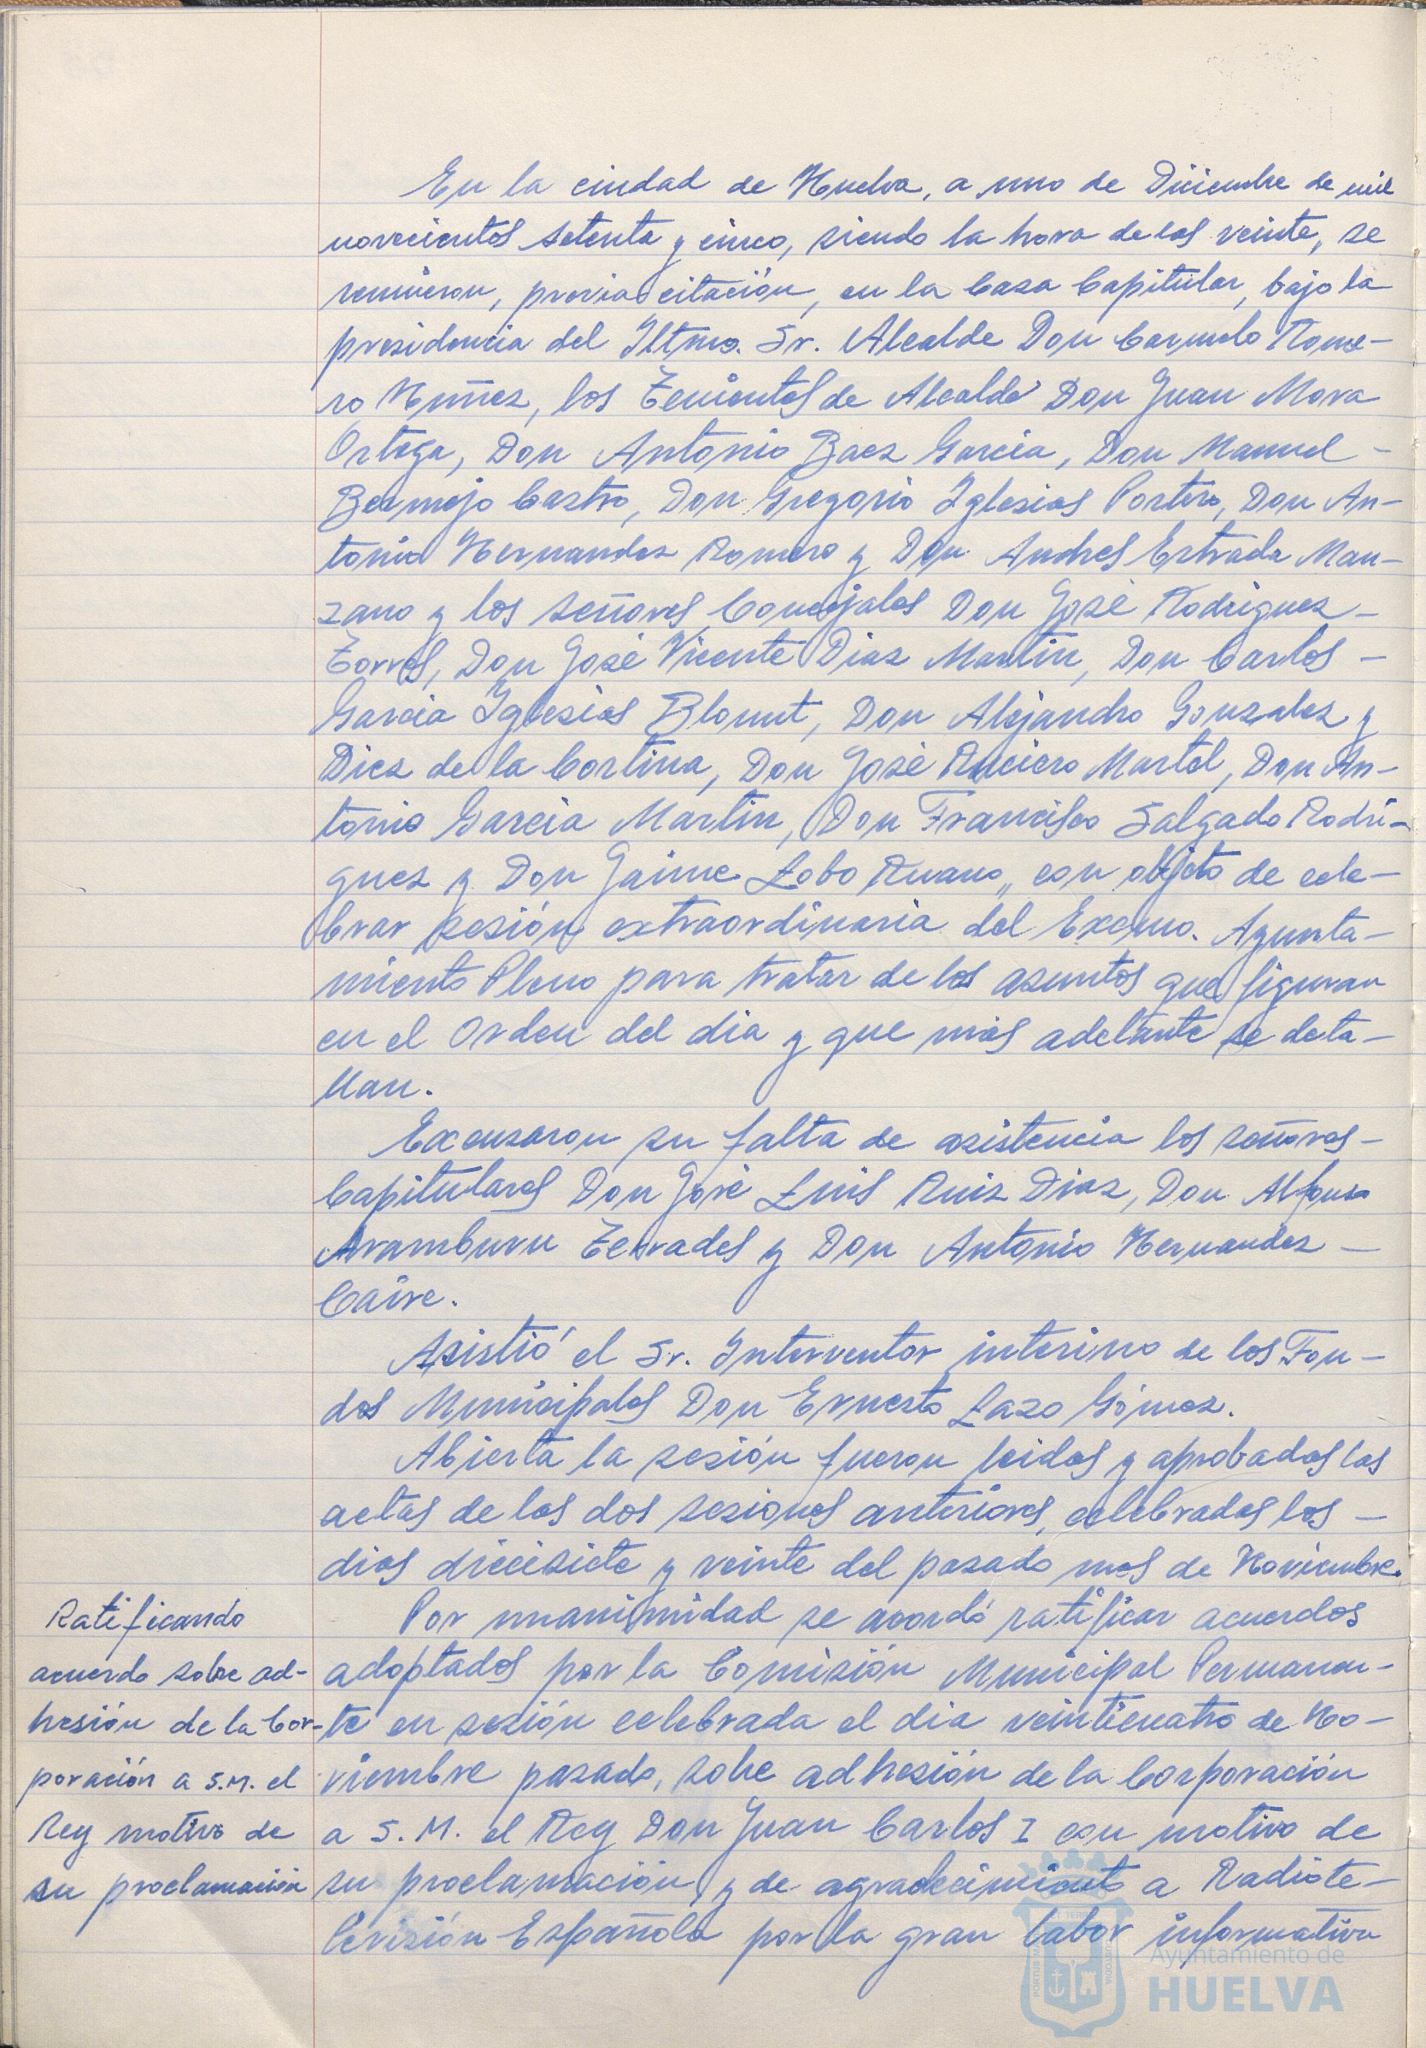 En la ciudad de Huelva, a uno de Diciembre de mil
novecientos setenta y cinco, siendo la hora de las veinte, se
reunieron, previa citación, en la Casa Capitular, bajo la
presidencia del Iltmo. Sr. Alcalde Don Carmelo Rome-
ro Nuñez, los Tenientes de Alcalde Don Juan Mora
Ortega, Don Antonio Baez Garcia, Don Manuel -
Bermejo Castro, Don Gregorio Iglesias Portero, Don An-
tonio Hernandez Romero y Don Andres Estrada Man-
zano y los señores Concejales Don José Rodriguez -
Torres, Don José Vicente Diaz Martin, Don Carlos -
Garcia Iglesias Blonut, Don Alejandro Gonzalez y
Diez de la Cortina, Don José Ruciero Martel, Don An-
tonio Garcia Martin, Don Francisco Salgado Rodri-
guez y Don Jaime Lobo Ruano, con objeto de cele-
brar sesión extraordinaria del Excmo. Ayunta-
miento Pleno para tratar de los asuntos que figuran
en el Orden del dia y que más adelante se deta-
llan.
Excusaron su falta de asistencia los señores -
Capitulares Don José Luis Ruiz Diaz, Don Alfonso
Aramburu Terrades y Don Antonio Hernandez -
Caire.
Asistió el Sr. Interventor interino de los Fon-
dos Municipales Don Ernesto Lazo Gómez.
Abierta la sesión fueron leidas y aprobadas las
actas de las dos sesiones anteriores, celebradas los -
dias diecisiete y veinte del pasado mes de Noviembre.
Ratificando
acuerdo sobre ad-
hesión de la Cor-
poración a S.M. el
Rey motivo de
su proclamación
Por unanimidad se acordó ratificar acuerdos
adoptados por la Comisión Municipal Permanen-
te en sesión celebrada el dia veinticuatro de No-
viembre pasado, sobre adhesión de la Corporación
a S. M. el Rey Don Juan Carlos I con motivo de
su proclamación y de agradecimiento a Radiote-
levisión Española por la gran labor informativa
Ayuntamiento de
HUELVA